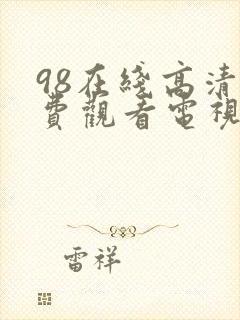 98在綫高清
費觀看電視
雷祥